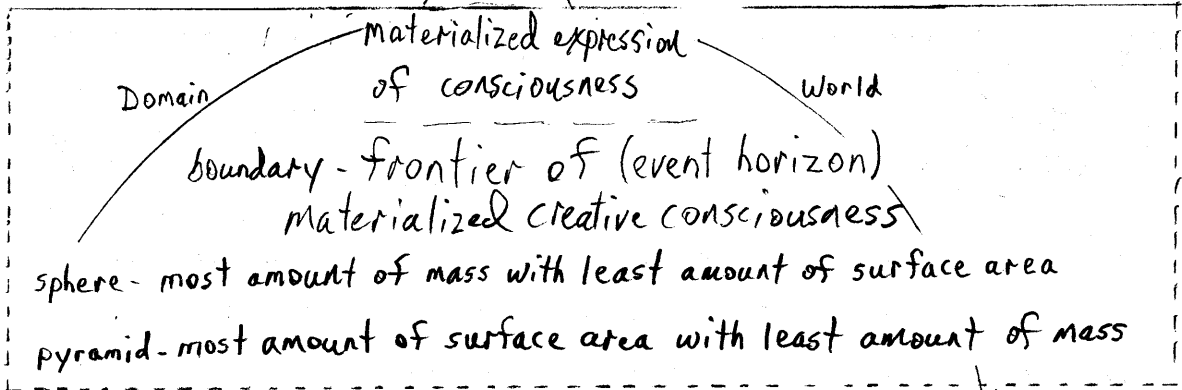 materialized expression
of consciousness
Domain
World
boundary - frontier of (event horizon)
materialized creative consciousness
sphere - most amount of mass with least amount of surface area
pyramid - most amount of surface area with least amount of mass